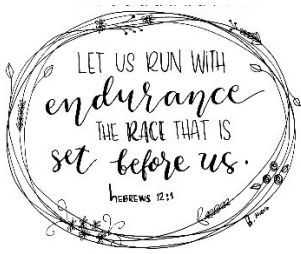 LET US RUN WITH
endurance
THE RACE THAT IS
set before us.
HEBREWS 12:1